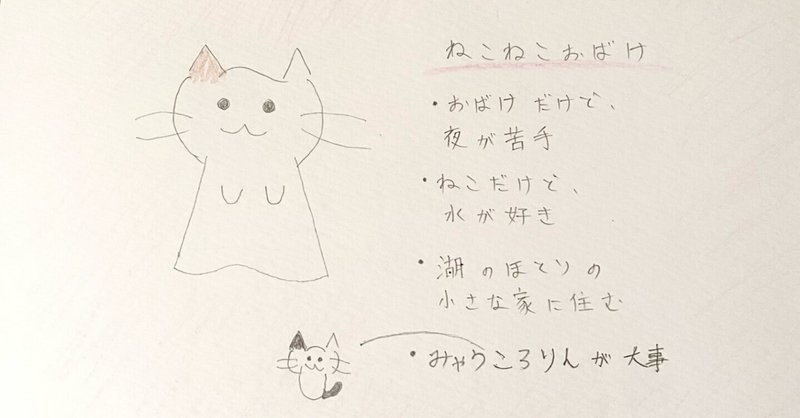 ねこねこおばけ
・おばけだけど、
夜が苦手
・ねこだけど、
水が好き
・湖のほとりの
小さな家に住む
・みゃうころりんが大事